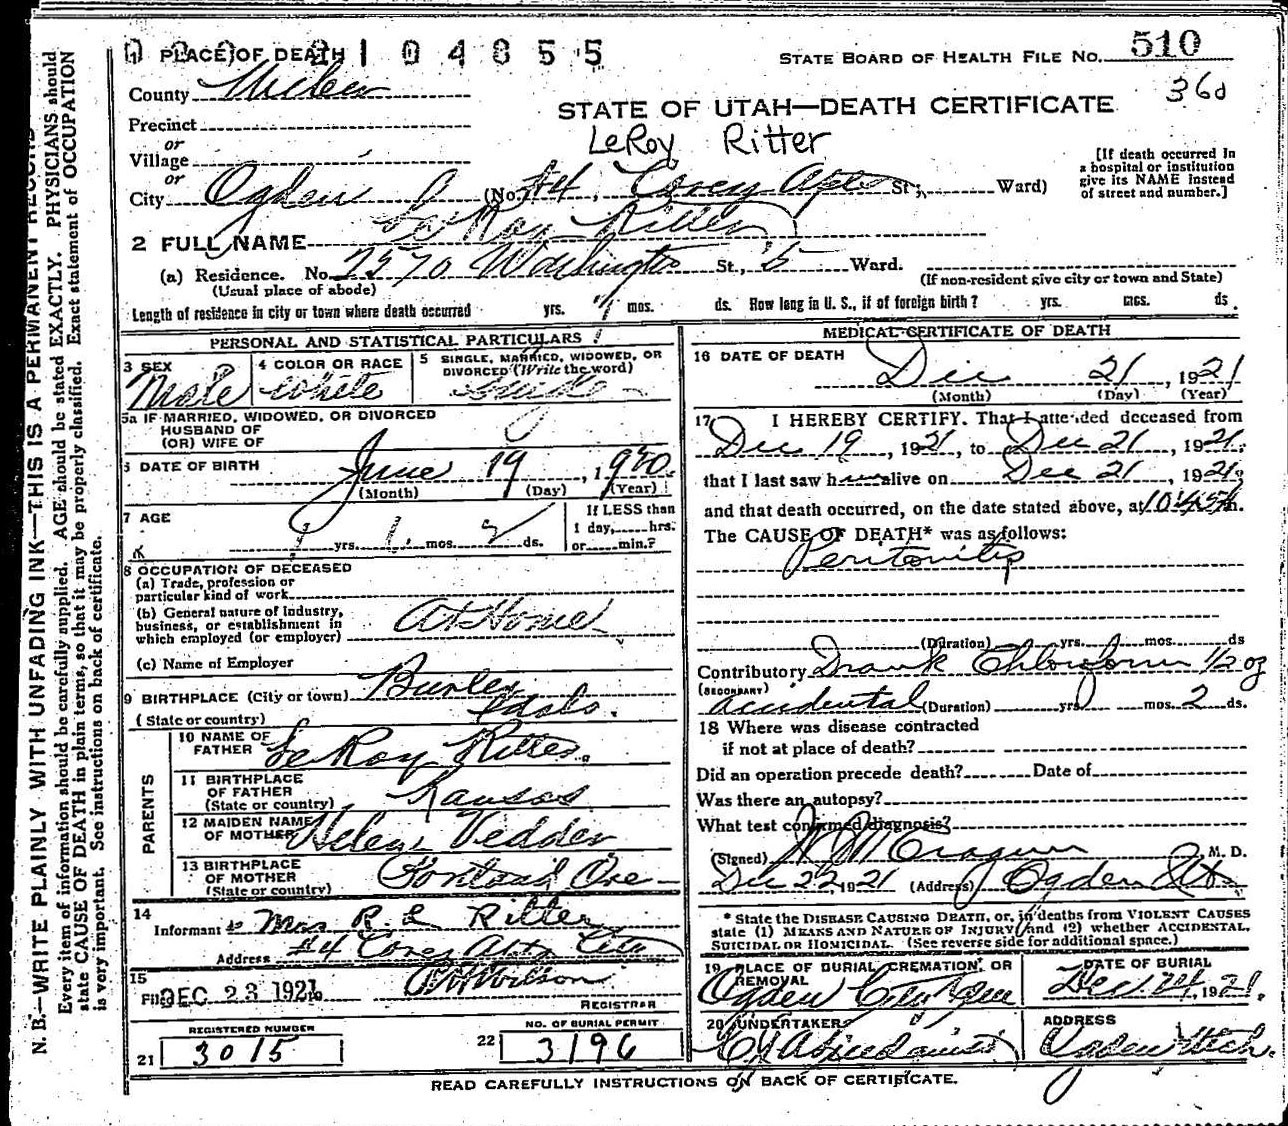 N. B.—WRITE PLAINLY WITH UNFADING INK—THIS IS A PERMANENT RECORD
Every item of information should be carefully supplied. AGE should be stated EXACTLY. PHYSICIANS should
state CAUSE OF DEATH in plain terms, so that it may be properly classified. Exact statement of OCCUPATION
is very important. See instructions on back of certificate.
1 PLACE OF DEATH
2104855
STATE BOARD OF HEALTH FILE NO. 510
County
360
STATE OF UTAH—DEATH CERTIFICATE
Precinct
or
LeRoy Ritter
Village
or
City Ogden (No. #4, Corey Apts St; Ward)
[If death occurred in
a hospital or institution
give its NAME instead
of street and number.]
2 FULL NAME LeRoy Ritter
(a) Residence. No. 2570 Washington St., 5 Ward.
(Usual place of abode)
(If non-resident give city or town and State)
Length of residence in city or town where death occurred yrs. mos. ds. How long in U. S., if of foreign birth? yrs. mos. ds.
PERSONAL AND STATISTICAL PARTICULARS
3 SEX Male
4 COLOR OR RACE White
5 SINGLE, MARRIED, WIDOWED, OR
DIVORCED (Write the word)
Single
5a IF MARRIED, WIDOWED, OR DIVORCED
HUSBAND OF
(OR) WIFE OF
6 DATE OF BIRTH June 19, 1920.
(Month) (Day) (Year)
7 AGE 1 yrs. mos. 2 ds.
If LESS than
1 day, hrs.
or min.?
8 OCCUPATION OF DECEASED
(a) Trade, profession or
particular kind of work
(b) General nature of industry,
business, or establishment in
which employed (or employer) At Home
(c) Name of Employer
9 BIRTHPLACE (City or town) Burley
(State or country) Idaho.
PARENTS
10 NAME OF
FATHER LeRoy Ritter.
11 BIRTHPLACE
OF FATHER
(State or country) Kansas
12 MAIDEN NAME
OF MOTHER Helen Vedder
13 BIRTHPLACE
OF MOTHER
(State or country) Portland Ore
14
Informant Mrs R L Ritter
Address #4 Corey Apts City
15
Filed DEC 23 1921 Wilson
REGISTRAR
REGISTERED NUMBER
21 3015
NO. OF BURIAL PERMIT
22 3196
MEDICAL CERTIFICATE OF DEATH
16 DATE OF DEATH
Dec 21, 1921
(Month) (Day) (Year)
17 I HEREBY CERTIFY. That I attended deceased from
Dec 19, 1921, to Dec 21, 1921;
that I last saw h alive on Dec 21, 1921;
and that death occurred, on the date stated above, at m.
The CAUSE OF DEATH* was as follows:
Peritonitis
(Duration) yrs. mos. ds
Contributory Drank Chloroform 1/2 oz
(SECONDARY) accidental (Duration) yrs mos. 2 ds.
18 Where was disease contracted
if not at place of death?
Did an operation precede death? Date of
Was there an autopsy?
What test confirmed diagnosis?
(Signed) M. D.
Dec 22 1921 (Address) Ogden Ut
* State the DISEASE CAUSING DEATH, or, in deaths from VIOLENT CAUSES
state (1) MEANS AND NATURE OF INJURY and (2) whether ACCIDENTAL,
SUICIDAL OR HOMICIDAL. (See reverse side for additional space.)
19 PLACE OF BURIAL, CREMATION, OR
REMOVAL
Ogden City Cem
DATE OF BURIAL
Dec 24, 1921.
20 UNDERTAKER
ADDRESS
Ogden Utah.
READ CAREFULLY INSTRUCTIONS ON BACK OF CERTIFICATE.